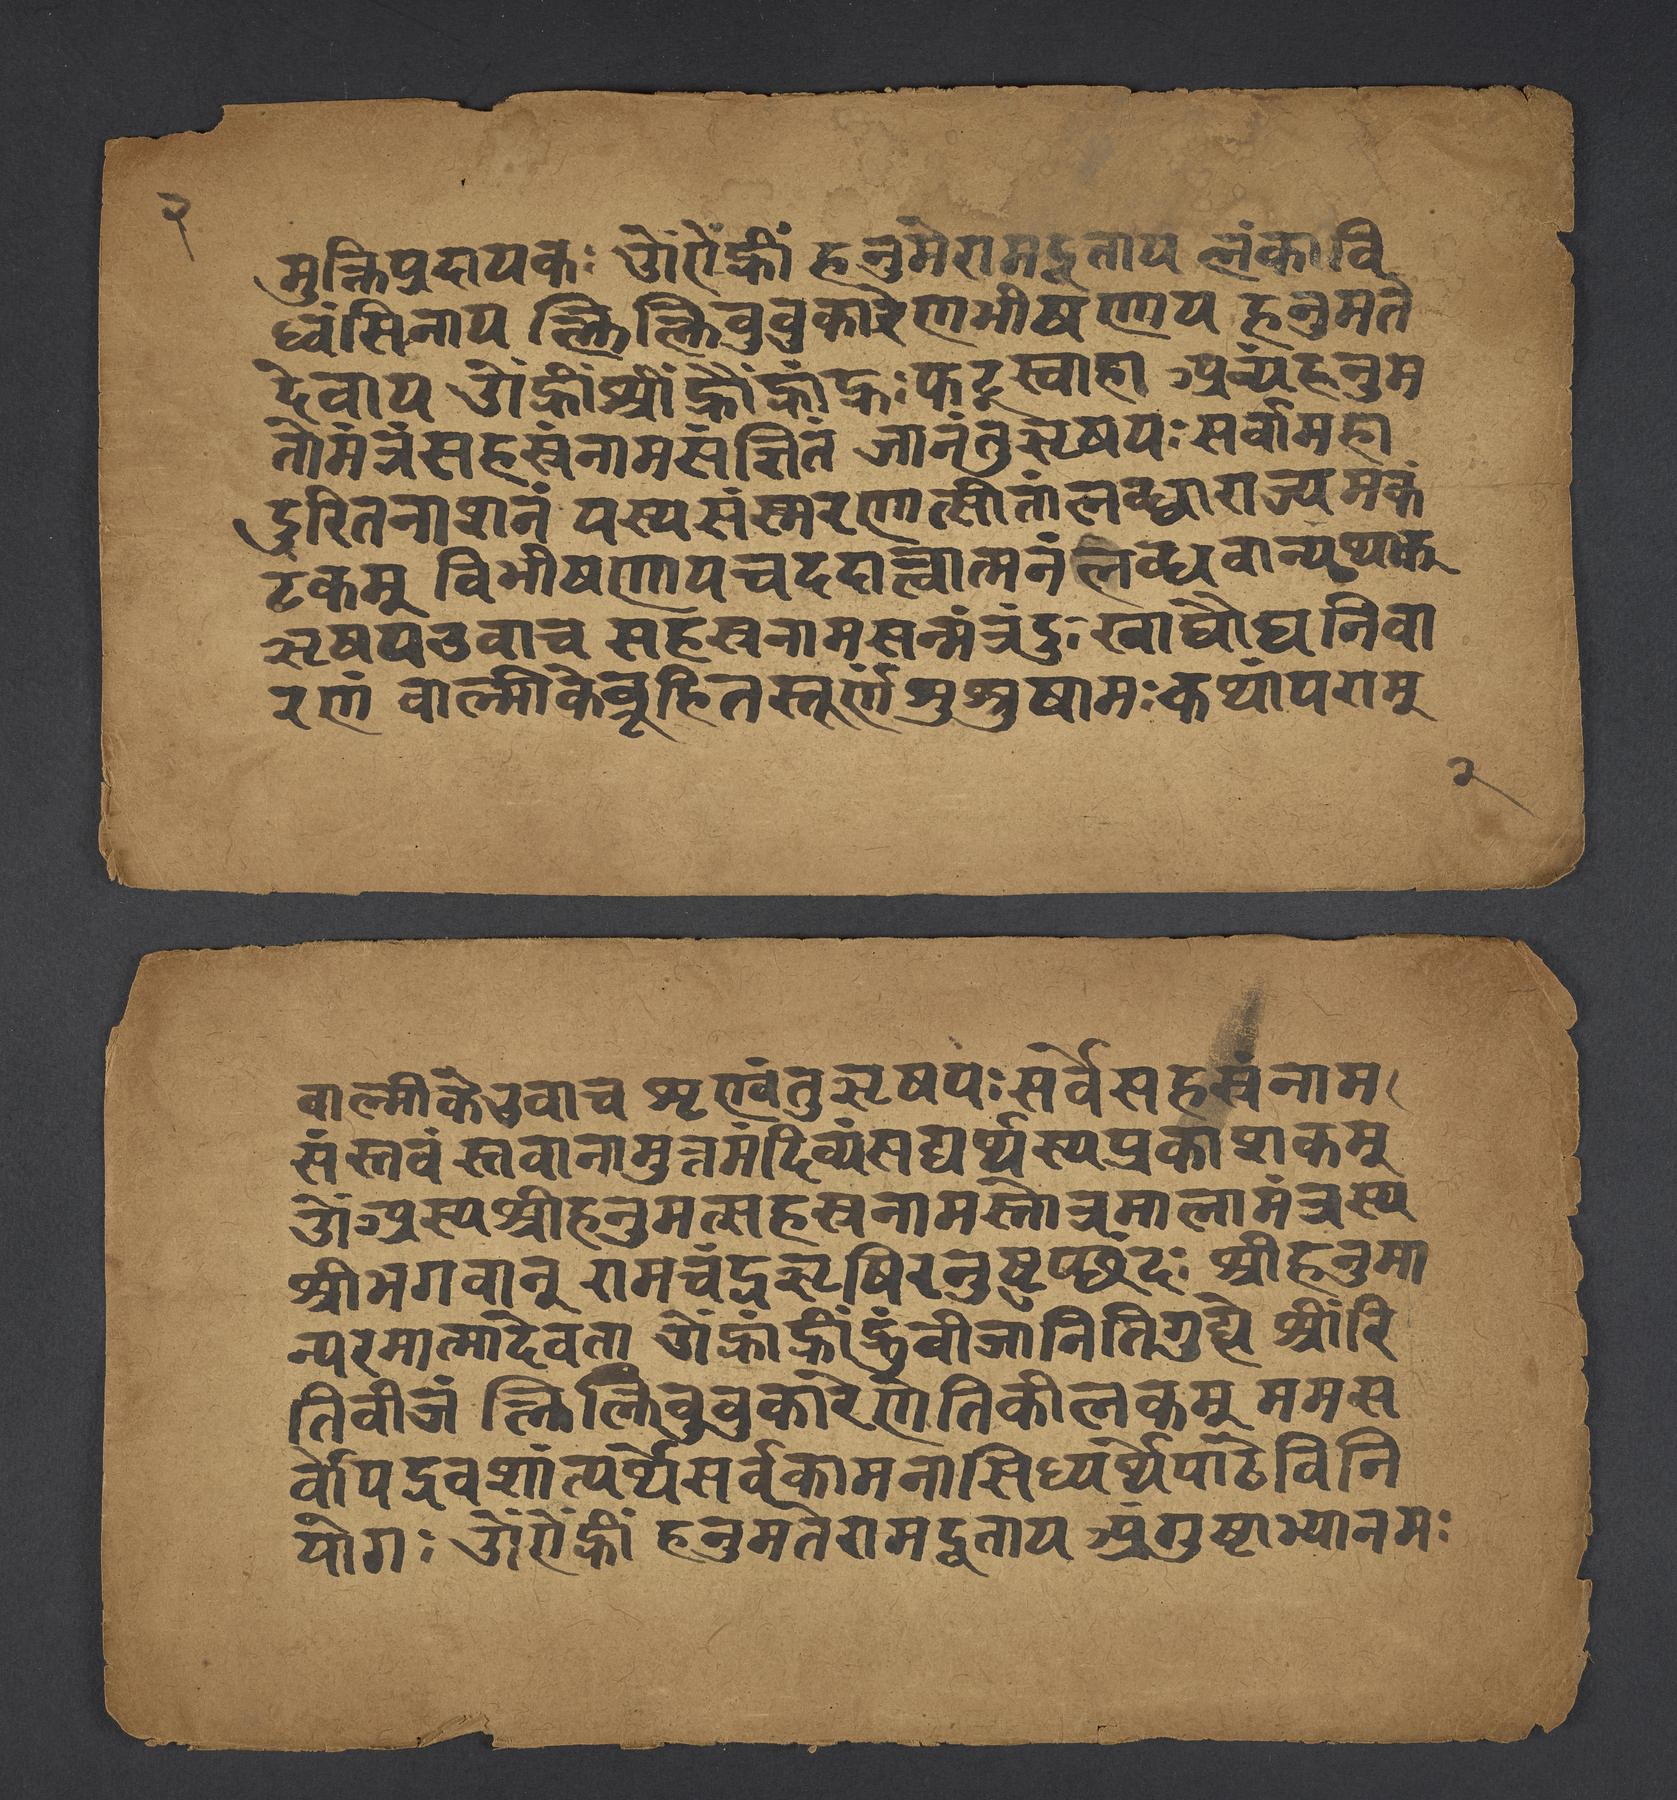 २
मुक्तिप्रदायकः ओंऐंह्रीं हनुमेरामदूताय लंकावि
ध्वंसिनाय लिलिवुवुकारेणभीषणाय हनुमते
देवाय ओंह्रींश्रींह्रौंह्रांह्रः फट्स्वाहा अन्यंहनुम
तोमंत्रंसहस्रंनामसंज्ञितं जानंतुऋषयः सर्वामहा
दुरितनाशनं यस्यसंस्मरणात्सीतांलब्ध्वाराज्यमकं
टकम् विभीषणायचददात्वात्मनंलब्धवान्यथाक्
ऋषयउवाच सहस्रनामसन्मंत्रंदुःखाघौघनिवा
रणं वाल्मीकेब्रूहितस्तूर्णंशुश्रुषामः कथांपराम्
२
वाल्मीकेउवाच शृण्वंतुऋषयः सर्वेसहस्रंनाम
संस्तवं स्तवानामुत्तमंदिव्यंसद्यर्थस्यप्रकाशकम्
ओंअस्यश्रीहनुमत्सहस्रनामस्तोत्रमालामंत्रस्य
श्रीभगवान् रामचंद्रऋषिरनुष्टुप्छंदः श्रीहनुमा
न्परमात्मादेवता ओंह्रांह्रींह्रुंवीजानितिगुह्ये श्रींरि
तिवीजं लिलिवुवुकारेणेतिकीलकम् ममस
र्वोपद्रवशांत्यर्थेसर्वकामनासिध्यर्थेपाठेविनि
योगः ओंऐंह्रीं हनुमतेरामदूताय अंगुष्ठाभ्यानमः